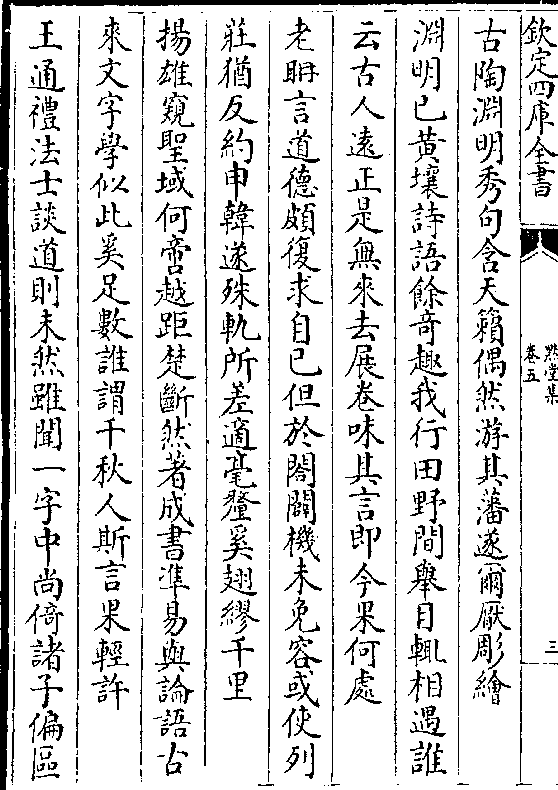 欽定四庫全書
點堂集
卷五
三
古陶淵明秀句含天籟偶然游其藩遂爾厭彫繪
淵明已黄壤詩語餘竒趣我行田野間舉目輒相遇誰
云古人逺正是無來去展卷味其言即今果何處
老耼言道德頗復求自已但於闔闢機未免容或使列
莊猶反約申韓遂殊軌所差適毫釐奚翅繆千里
揚雄窺聖域何啻越距楚斷然著成書凖易與論語古
來文字學似此奚足數誰謂千秋人斯言果輕許
王通禮法士談道則未然雖聞一字中尚倚諸子偏區